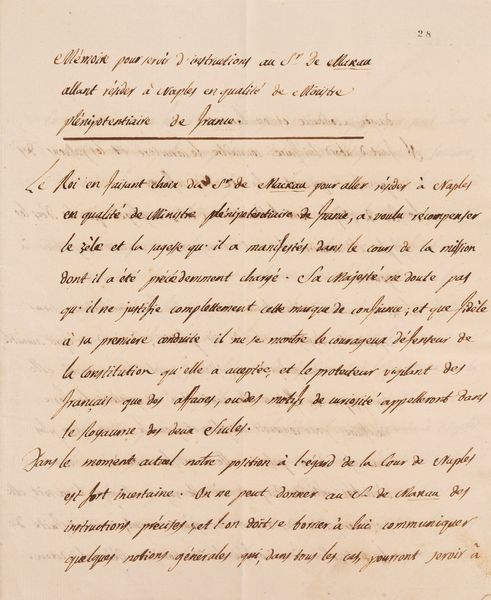 28
Mémoire pour servir d'instructions au Sr. de Makau
allant résider à Naples en qualité de Ministre
plénipotentiaire de france.
Le Roi en faisant choix du Sr. de Makau pour aller résider à Naples
en qualité de Ministre plénipotentiaire de france, a voulu récompenser
le zèle et la sagesse qu'il a manifestés dans le cours de la mission
dont il a été précédemment chargé. Sa Majesté ne doute pas
qu'il ne justifie complettement cette marque de confiance; et que fidèle
à sa premiere conduite il ne se montre le courageux défenseur de
la Constitution qu'elle a acceptée, et le protecteur vigilant des
français que des affaires, ou des motifs de curiosité appelleront dans
le Royaume des deux Siciles.
Dans le moment actuel notre position à l'égard de la Cour de Naples
est fort incertaine. On ne peut donner au Sr. de Makau des
instructions précises, et l'on doit se borner à lui communiquer
quelques notions générales qui, dans tous les cas, pourront servir à